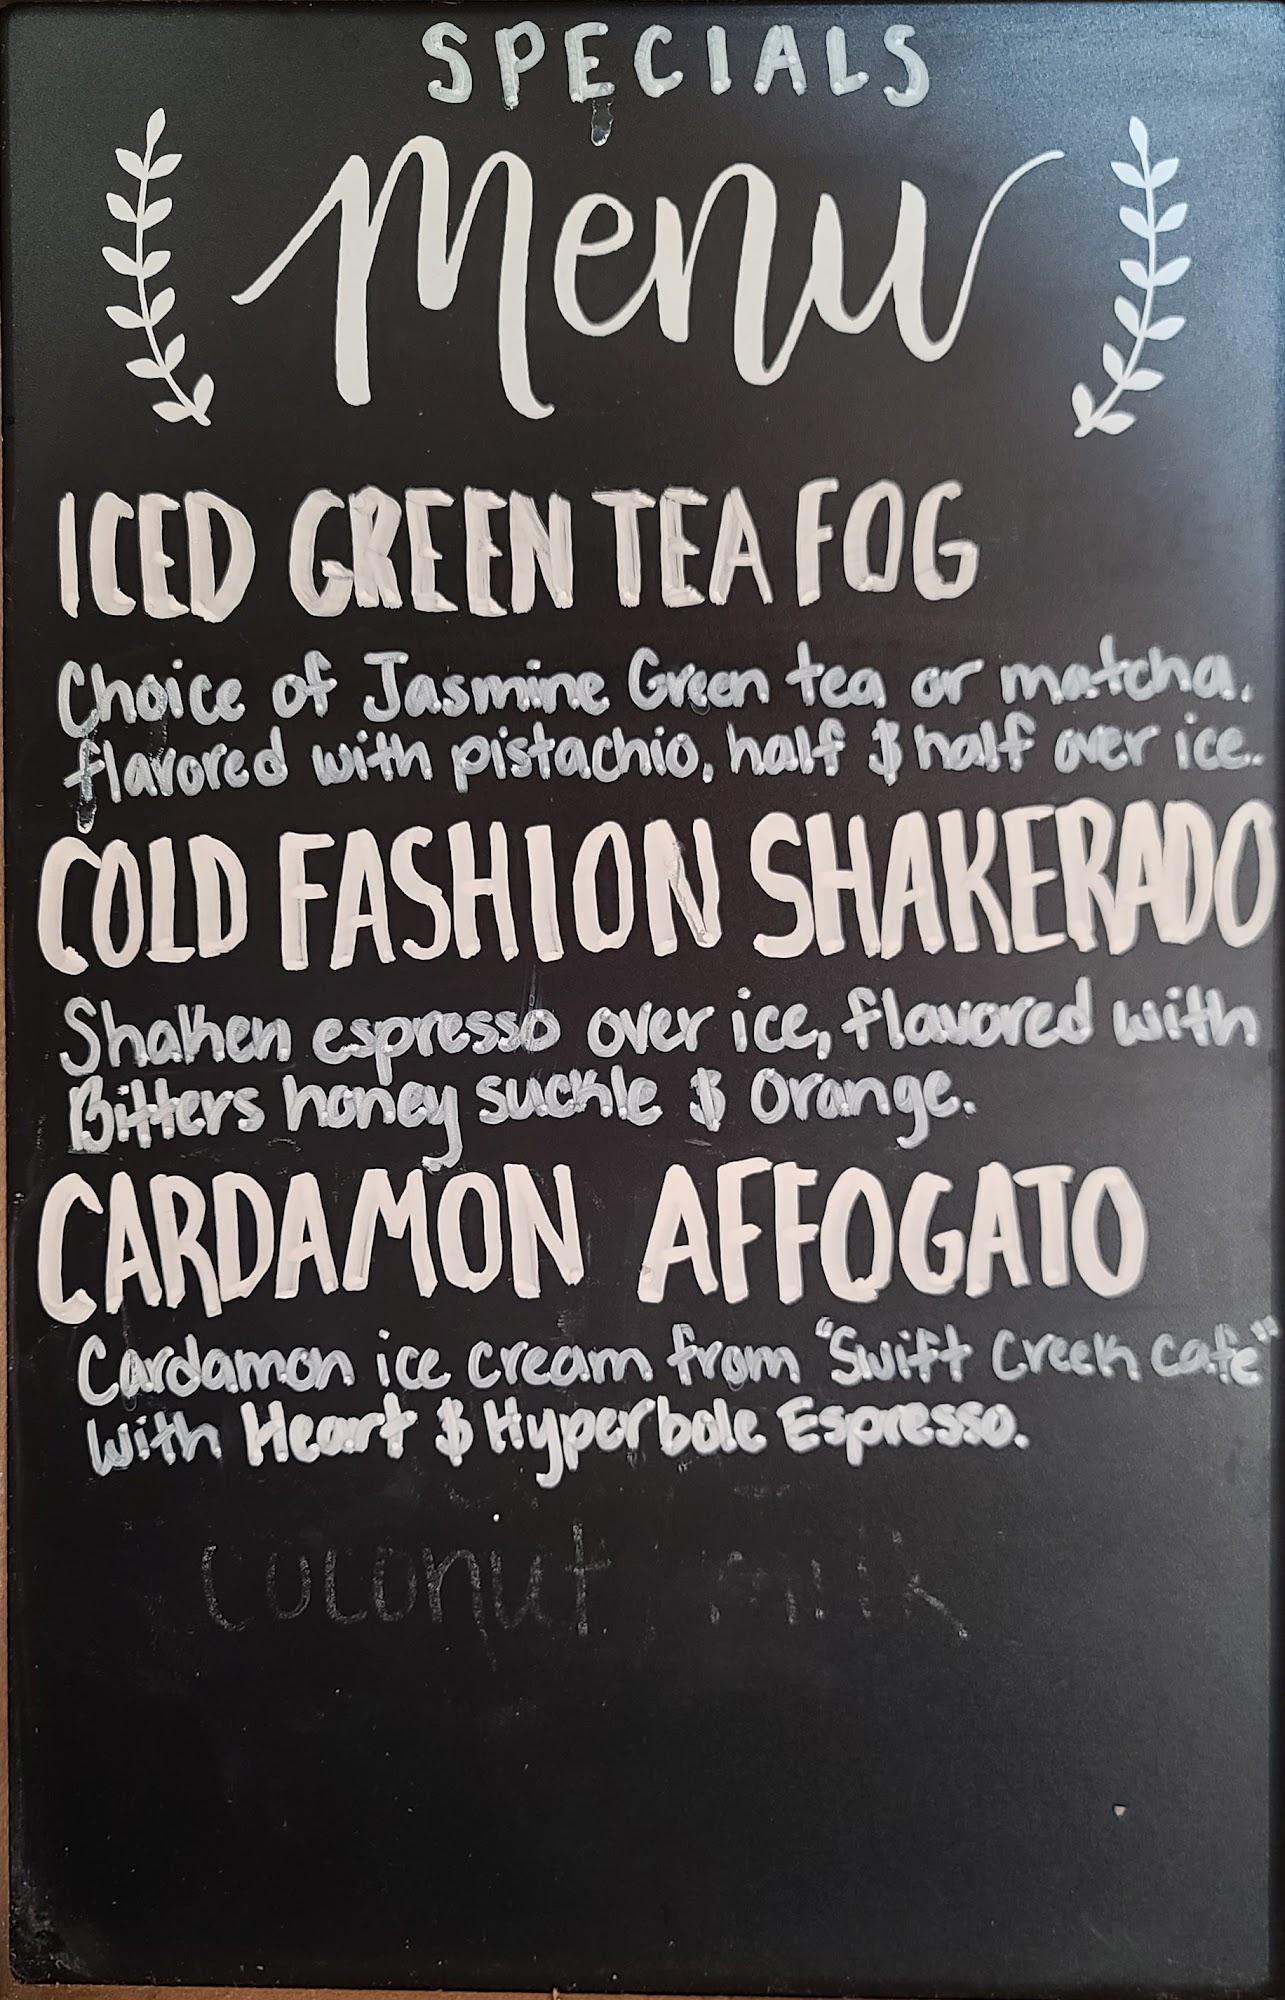 SPECIALS
Menu
ICED GREEN TEA FOG
Choice of Jasmine Green tea or matcha,
flavored with pistachio, half & half over ice.
COLD FASHION SHAKERADO
Shaken espresso over ice, flavored with
Bitters honey suckle & Orange.
CARDAMON AFFOGATO
Cardamon ice cream from "Swift Creek café"
with Heart & Hyperbole Espresso.
coconut milk